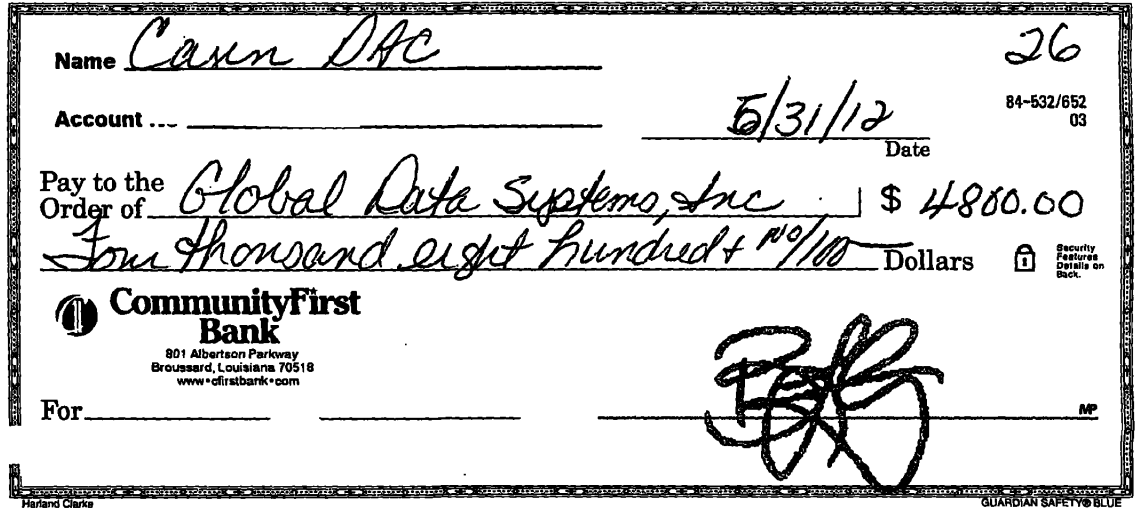 Name DAC 26
Account ...
84-532/652
03
5/31/12
Date
Pay to the
Order of Global Data Systems, Inc $ 4800.00
Four thousand eight hundred + no/100 Dollars
Security
Features
Details on
Back.
CommunityFirst
Bank
801 Albertson Parkway
Broussard, Louisiana 70518
www•cfirstbank•com
For
MP
Harland Clarke GUARDIAN SAFETY® BLUE